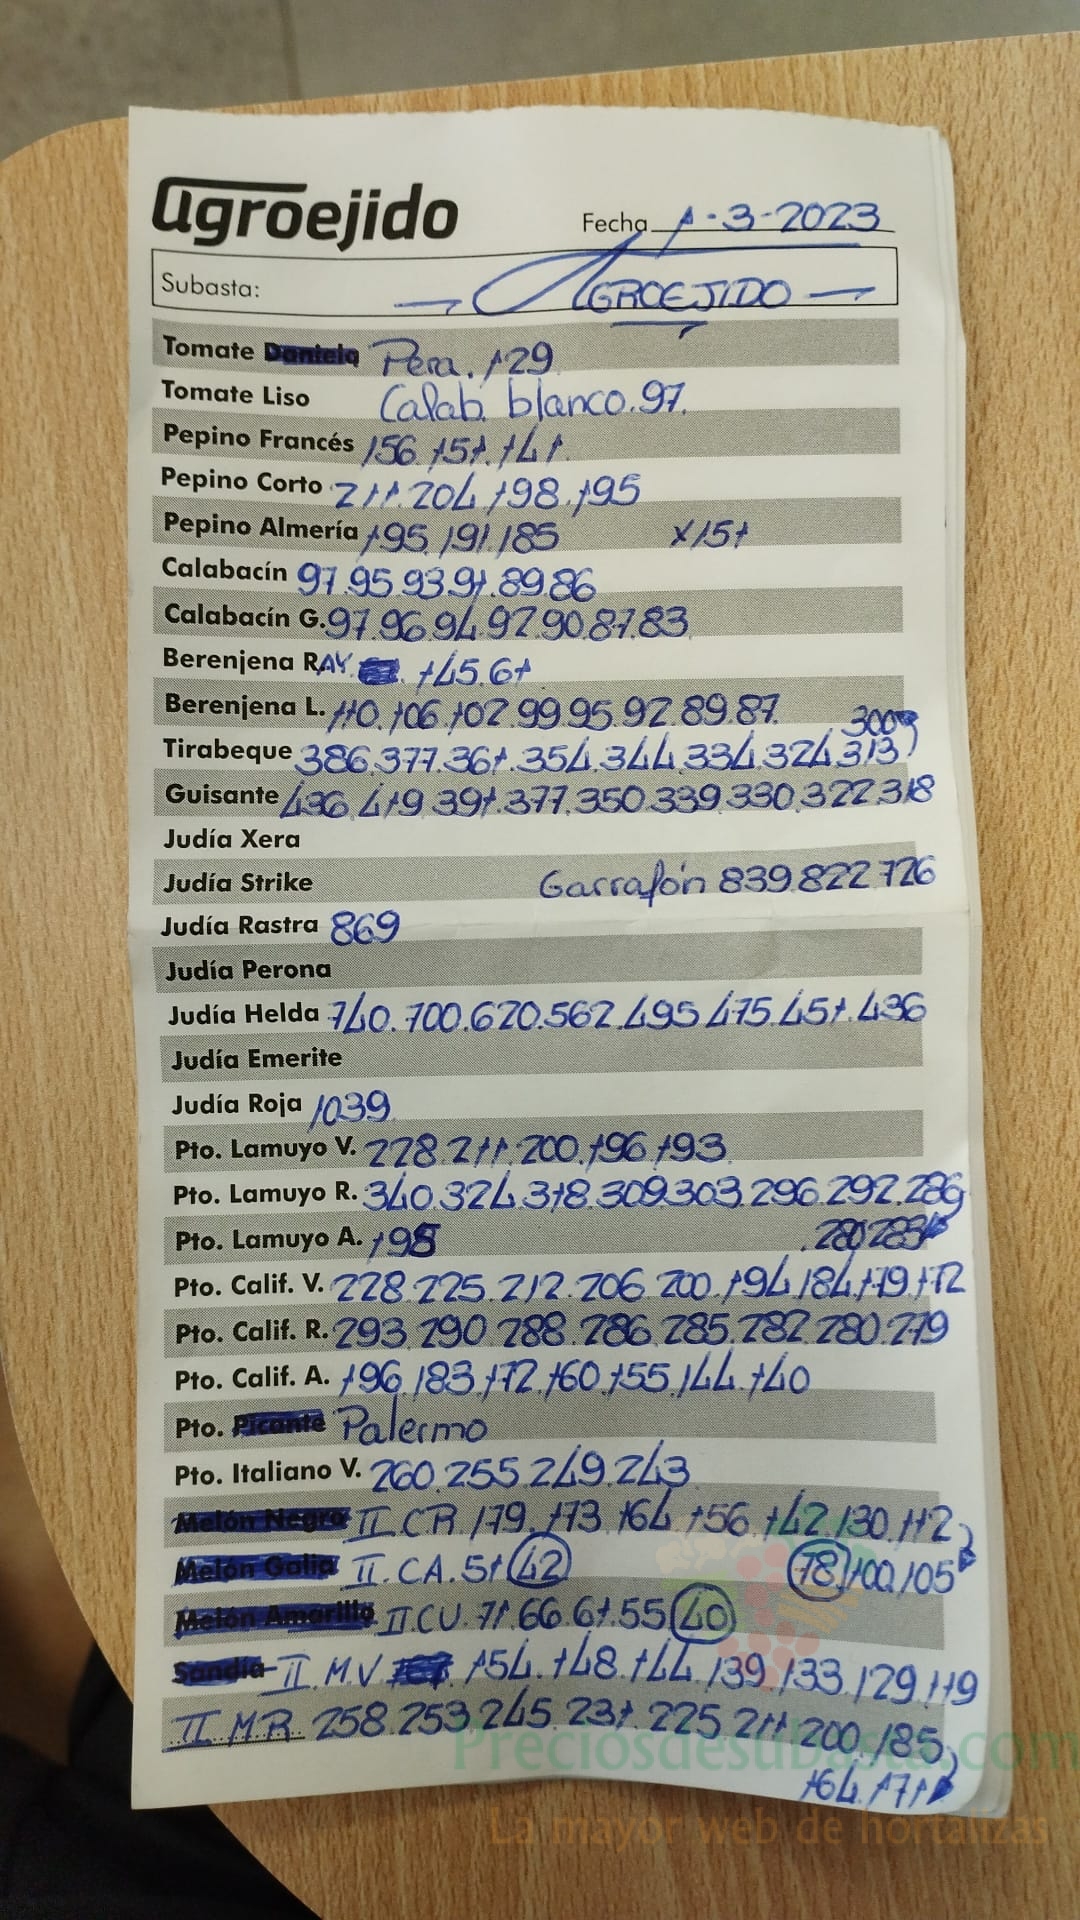 agroejido
Fecha 1-3-2023
Subasta: AGROEJIDO
Tomate Daniela Pera. 129
Tomate Liso Calab. blanco. 97.
Pepino Francés 156. 151. 141.
Pepino Corto 211. 204. 198. 195
Pepino Almería 195. 191. 185 x151
Calabacín 97.95.93.91.89.86
Calabacín G. 97.96.94.92.90.87.83
Berenjena RAY. 145.61
Berenjena L. 110.106.102.99.95.92.89.87.
300
Tirabeque 386.377.361.354.344.334.324.313
Guisante 436.419.391.377.350.339.330.322.318
Judía Xera
Judía Strike Garrafón 839.822.726
Judía Rastra 869
Judía Perona
Judía Helda 740.700.620.562.495.475.451.436
Judía Emerite
Judía Roja 1039
Pto. Lamuyo V. 228.211.200.196.193
Pto. Lamuyo R. 340.324.318.309.303.296.292.286
Pto. Lamuyo A. 198 .280.283
Pto. Calif. V. 228.225.212.206.200.194.184.179.172
Pto. Calif. R. 293.290.288.286.285.282.280.279
Pto. Calif. A. 196.183.172.160.155.144.140
Pto. Picante Palermo
Pto. Italiano V. 260.255.249.243
Melón Negro II CR 179.173.164.156.142.130.112
Melón Galia II. CA. 51 42 78 100.105
Melón Amarillo II CU. 71.66.61.55 40
Sandía II M.V 154.148.144.139.133.129.119
II M.R. 258.253.245.231.225.211.200.185
164.171
Preciosdesubasta.com
La mayor web de hortalizas